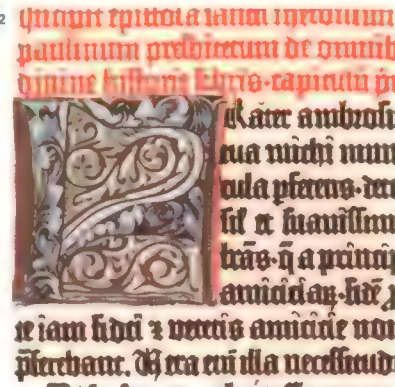 Incipit epistola sancti iheronimi
paulinum presbiterum de omnib
divine historie libris·capitulū p
Rater ambrosi
tua michi mun
cula pferens·det
sil̄ et suavissim
trās·q̄ a princip
amiciciaȝ·fidē
re iam fidei ⁊ veteris amicicie nov
p̄ferebant. Vera em̄ illa necessitud